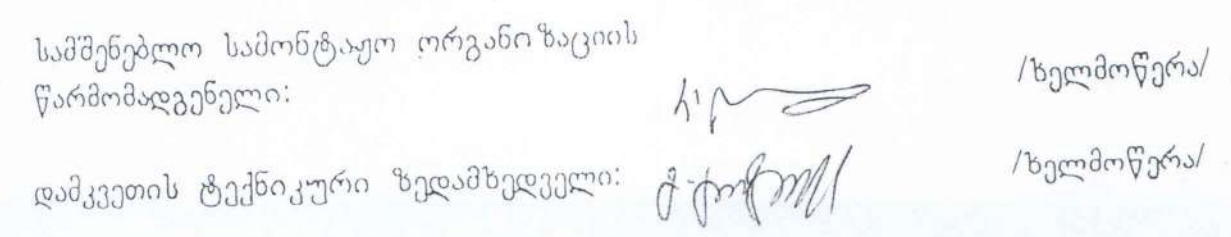 სამშენებლო სამონტაჟო ორგანიზაციის
წარმომადგენელი: /ხელმოწერა/
დამკვეთის ტექნიკური ზედამხედველი: /ხელმოწერა/